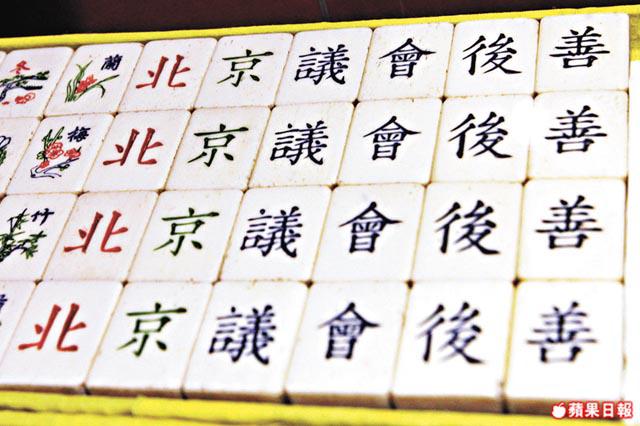 冬 蘭 北 京 議 會 後 善
梅 北 京 議 會 後 善
竹 北 京 議 會 後 善
北 京 議 會 後 善
蘋果日報